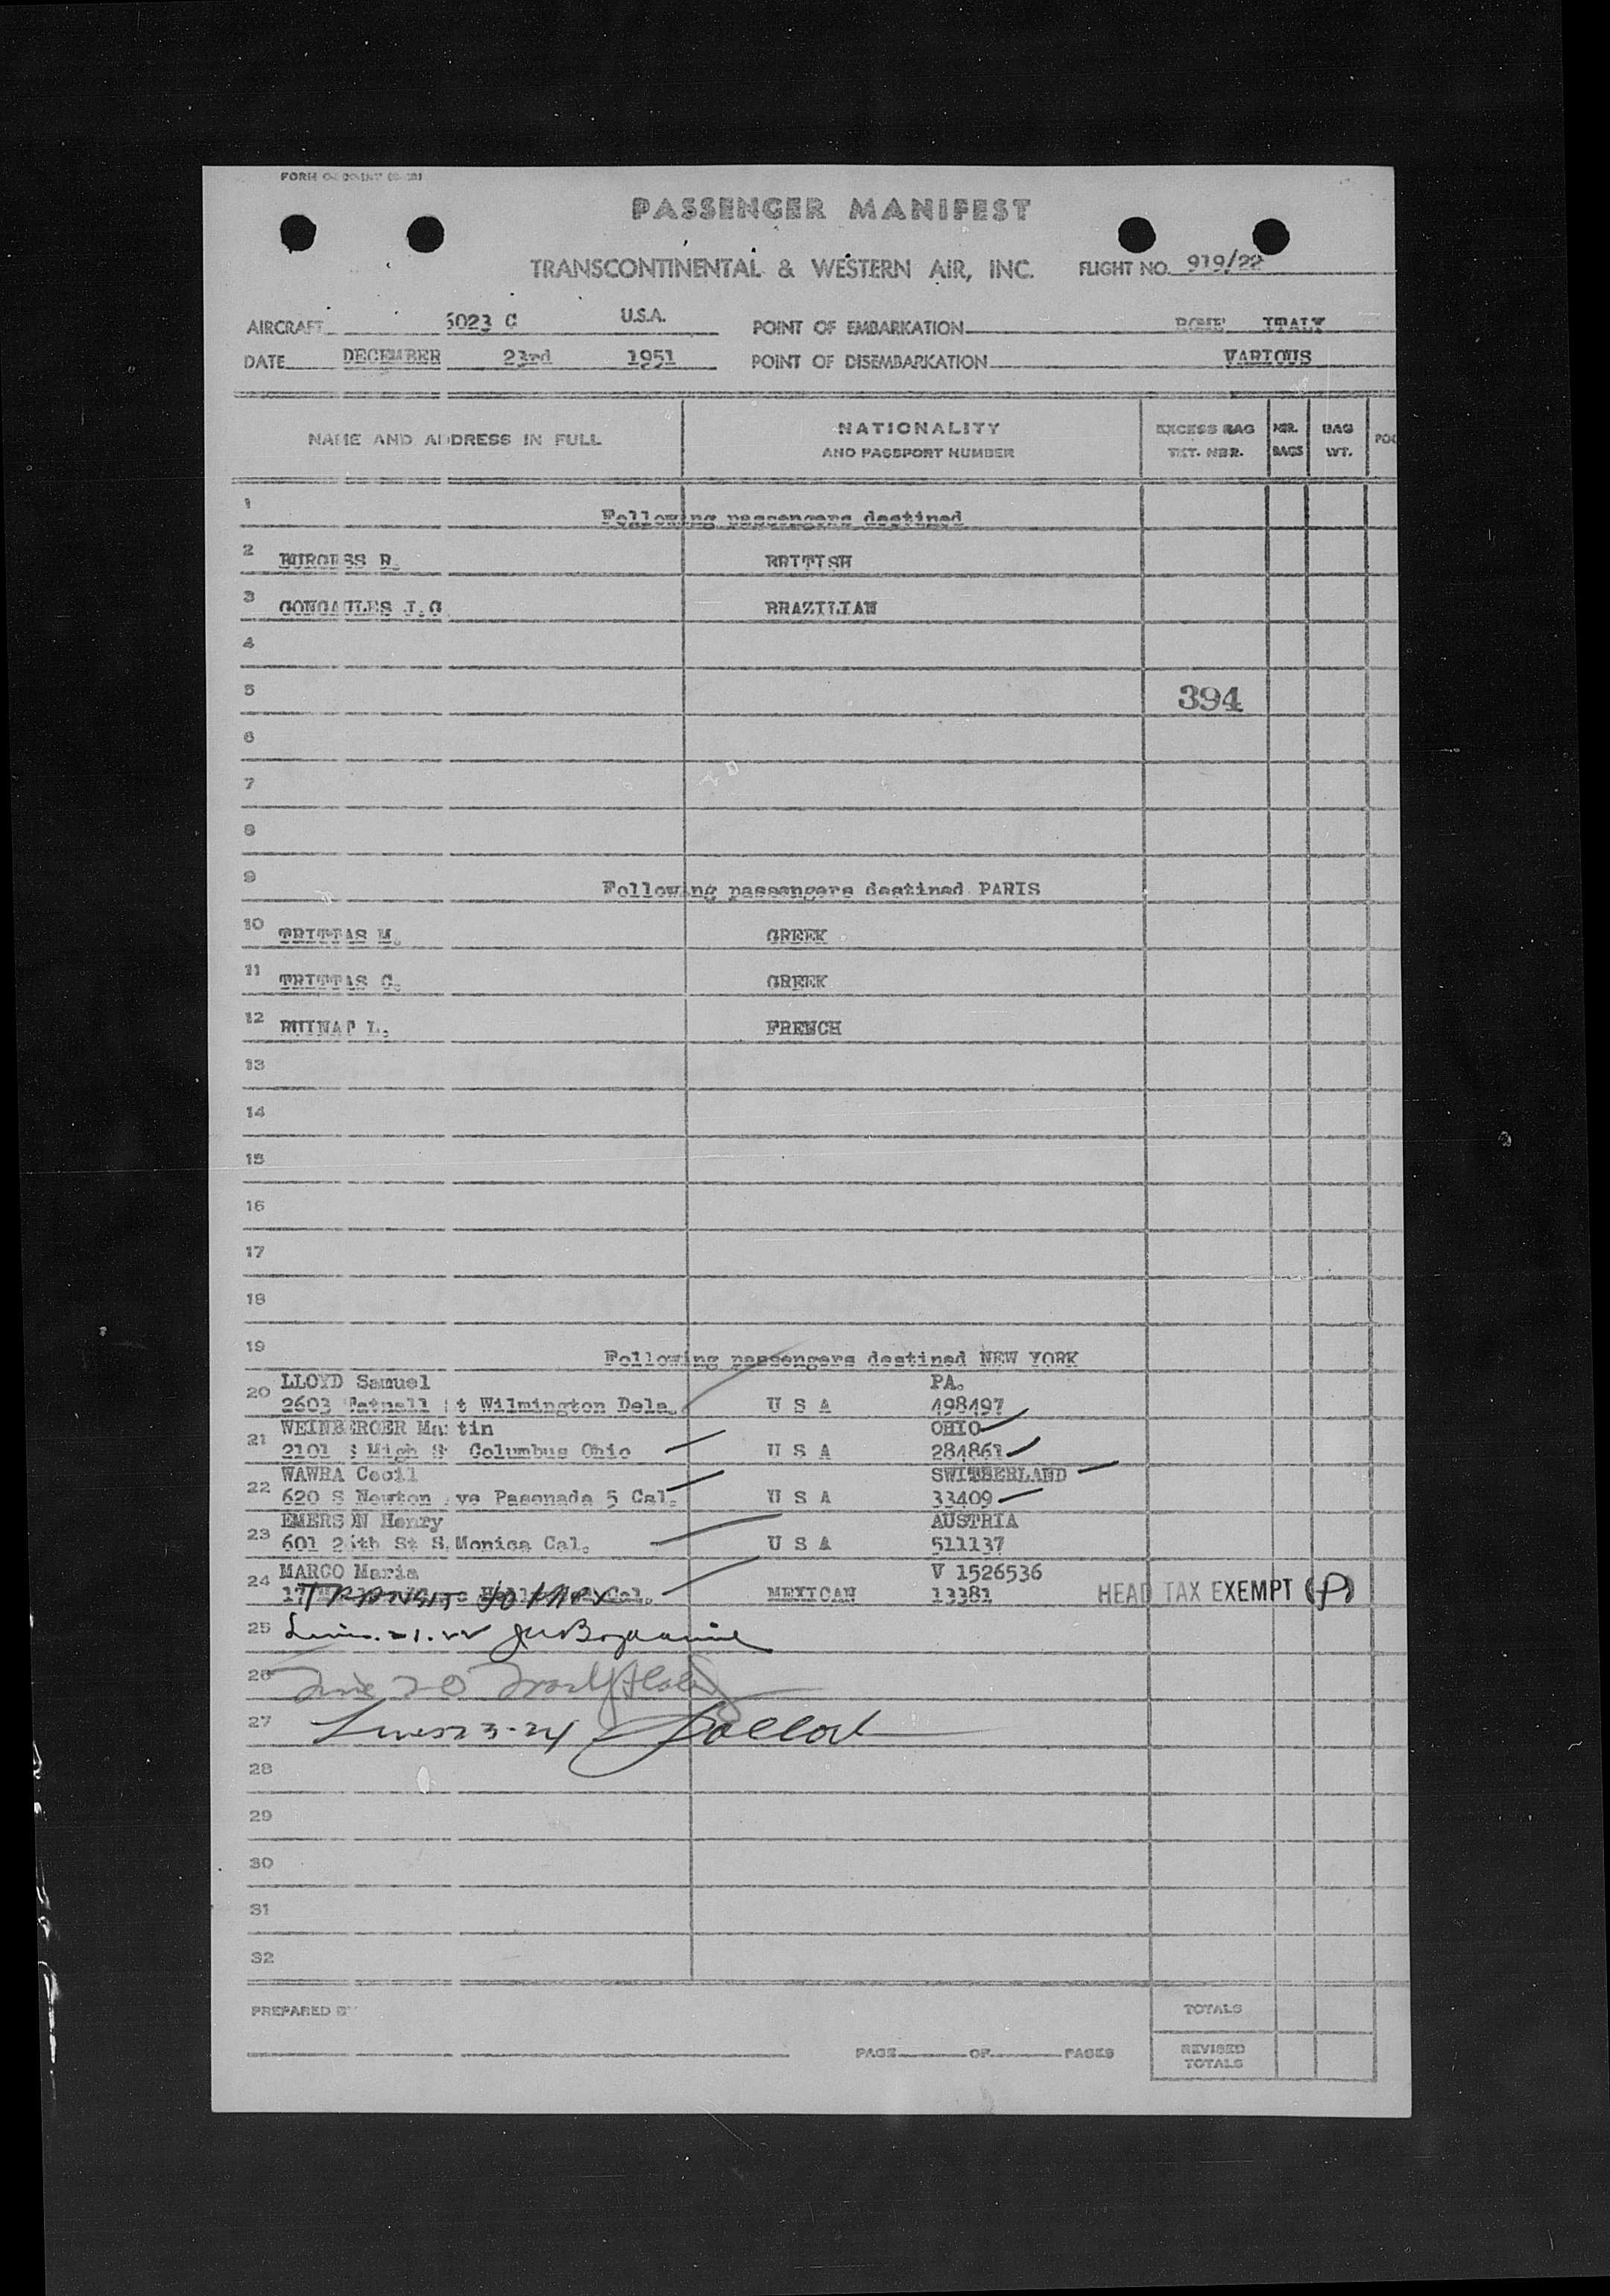 PASSENGER MANIFEST
TRANSCONTINENTAL & WESTERN AIR, INC. FLIGHT NO. 919/22
AIRCRAFT 6023 C U.S.A. POINT OF EMBARKATION ROME ITALY
DATE DECEMBER 23rd 1951 POINT OF DISEMBARKATION VARIOUS
NAME AND ADDRESS IN FULL NATIONALITY AND PASSPORT NUMBER EXCESS BAG TKT. NBR. NBR. BAGS BAG WT.
1 Following passengers destined
2 BURGESS R. BRITISH
3 GONCAULES J.G BRAZILIAN
4
5 394
6
7
8
9 Following passengers destined PARIS
10 TRITTAS M. GREEK
11 TRITTAS C. GREEK
12 L. FRENCH
13
14
15
16
17
18
19 Following passengers destined NEW YORK
LLOYD Samuel PA.
20 2603 Tatnall St Wilmington Dela. U S A 498497
WEINBERGER Martin OHIO
21 2101 Columbus Ohio U S A 284861
WAWRA Cecil SWITBERLAND
22 620 S Newton ve Pasenada 5 Cal. U S A 33409
EMERSON Henry AUSTRIA
23 601 26th St S.Monica Cal. U S A 511137
MARCO Maria V 1526536
24 TRANSIT TO MEX Cal. MEXICAN 13381 HEAD TAX EXEMPT (P)
25
26 Line 20
27 Lines 23-24
28
29
30
31
32
PREPARED BY TOTALS
PAGE OF PAGES REVISED TOTALS